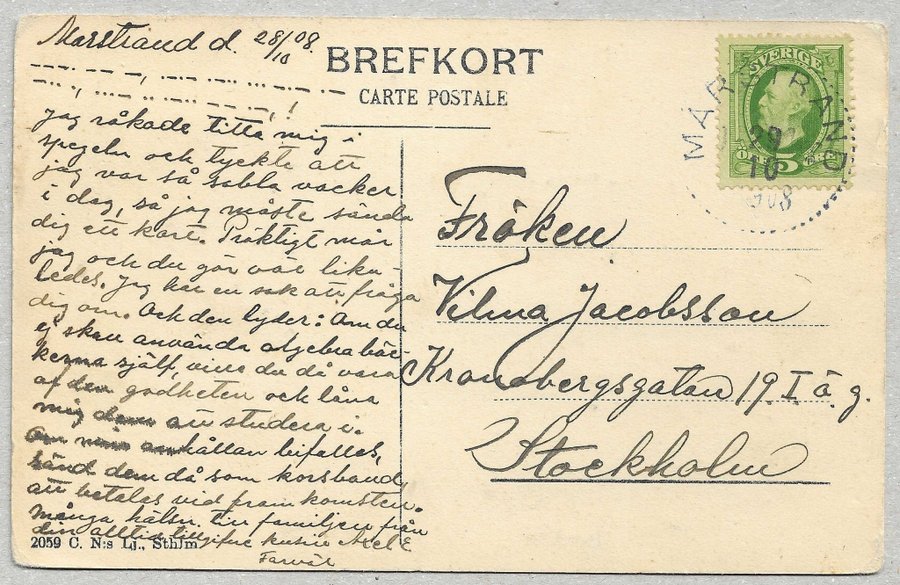 Marstrand d. 28/10 08.
BREFKORT
CARTE POSTALE
SVERIGE
5 ÖRE
MARSTRAND
29
10
1908
Jag råkade titta mig i
spegeln och tyckte att
jag var så sabla vacker
i dag, så jag måste sända
dig ett kort. Präktigt mår
jag och du gör väl lika-
ledes. Jag har en sak att fråga
dig om. Och den lyder: Om du
ej skall använda algebra böc-
kerna själf, vill du då vara
af den godheten och låna
mig dem att studera i.
Om min anhållan bifalles,
sänd dem då som korsband
att betalas vid framkomsten.
Många hälsn. till familjen från
din alltid tillgifne kusin Axel E
Farväl
2059 C. N:s Lj., Sthlm
Fröken
Vilma Jacobsson
Kronobergsgatan 19 I ö. g.
Stockholm